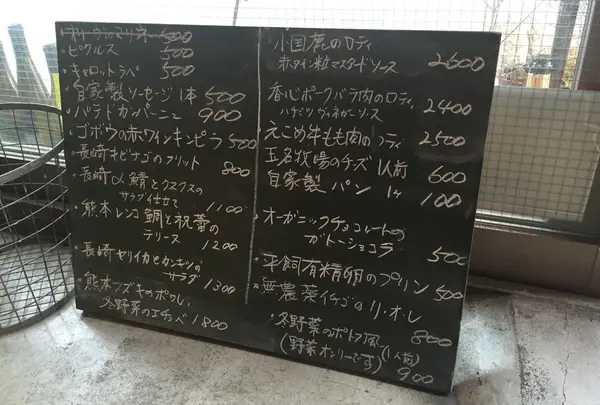 オリーブのマリネ 500
・ピクルス 500
・キャロットラペ 500
・自家製ソーセージ1本 500
・パテドカンパーニュ 900
・ゴボウの赤ワインキンピラ 500
・長崎キビナゴのフリット 800
・長崎〆鯖とクスクスの
サラダ仕立て 1100
・熊本レンコ鯛と祝蕾の
テリーヌ 1200
・長崎ヤリイカとカンキツの
サラダ 1300
・熊本スズキのポワレ
冬野菜のエチュベ 1800
・小国鹿のロティ
赤ワイン粒マスタードソース 2600
・香心ポークバラ肉のロティ
ハチミツヴィネガーソース 2400
・えこめ牛もも肉のロティ 2500
・玉名牧場のチーズ 1人前 600
・自家製パン 1ケ 100
・オーガニックチョコレートの
ガトーショコラ 500
・平飼有精卵のプリン 500
・無農薬イチゴのリ・オ・レ
800
・冬野菜のポトフ風
(野菜オンリーです) (1人前)
900